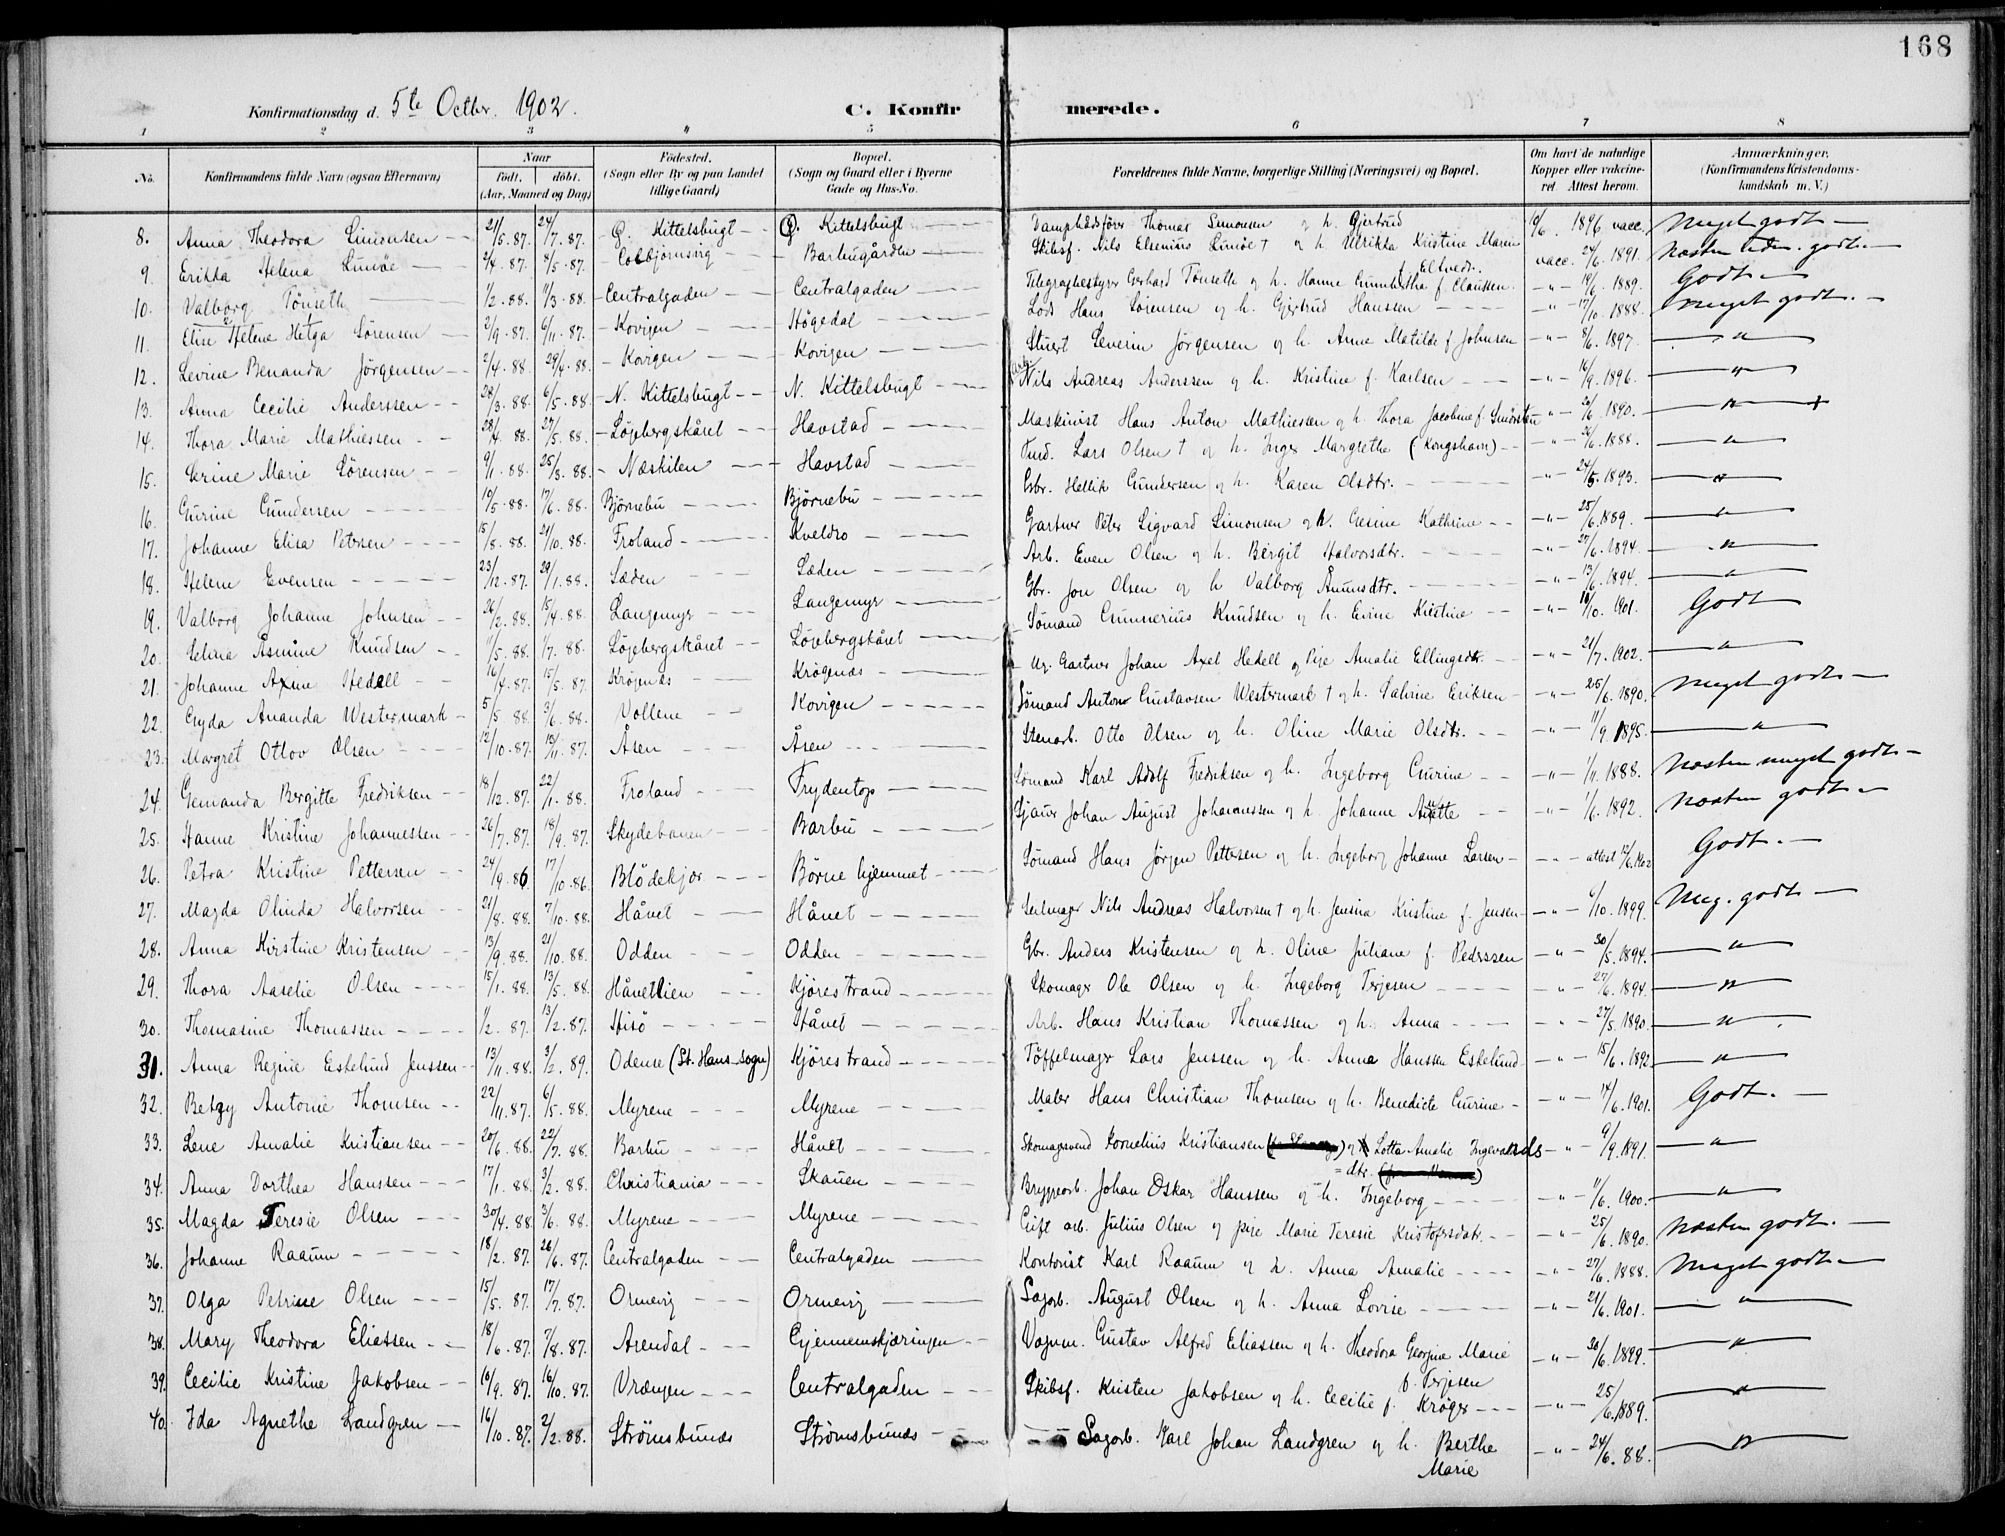 168
Konfirmationsdag d. 5te Octbr. 1902.
C. Konfir merede.
1 2 3 4 5 6 7 8
No. Konfirmandens fulde Navn (ogsaa Efternavn) Naar født. døbt. (Aar, Maaned og Dag) Fødested. (Sogn eller By og paa Landet tillige Gaard) Bopæl. (Sogn og Gaard eller i Byerne Gade og Hus-No. Forældrenes fulde Navne, borgerlige Stilling (Næringsvei) og Bopæl. Om havt de naturlige Kopper eller vakcineret. Attest herom. Anmærkninger. (Konfirmandens Kristendomskundskab m. V.)
8. Anna Theodora Simonsen 21/5. 87. 24/7. 87. G. Kittelsbugt G. Kittelsbugt Dampbådsfører Thomas Simonsen og h. Gjertrud 10/6. 1896 vacc. Meget godt
9. Erikka Helena Simøe 2/4. 87. 8/5. 87. Colbjørnsvig Barbugården Skibsf. Nils Elsenius Simøe † og h. Ulrikka Kristine Maren f. Eltvedt. vacc. 24/6. 1891. Næsten godt.
10. Valborg Tønseth 1/2. 88. 11/3. 88. Centralgaden Centralgaden Telegrafbestyrer Gerhard Tønseth og h. Hanne f. Claussen. -"- 19/6. 1889. Godt
11. Elise Helene Helga Sørensen 2/9. 87. 6/11. 87. Kovigen Høgedal Lods Hans Sørensen og h. Gjertrud Hanssen -"- 17/10. 1888. Meget godt.
12. Levine Benanda Jørgensen 2/4. 88. 29/4. 88. Kovigen Kovigen Stuert Severin Jørgensen og h. Anne Matilde f. Johnsen -"- 8/6. 1897. "
13. Anna Cecilie Anderssen 28/3. 88. 6/5. 88. N. Kittelsbugt N. Kittelsbugt Arb. Nils Andreas Anderssen og h. Kristine f. Karlsen -"- 16/9. 1896. "
14. Thora Marie Mathiessen 28/4. 88. 27/5. 88. Løjebergskåret Havstad Maskinist Hans Anton Mathiessen og h. Thora Jacobine f. -"- 20/6. 1890. "
15. Serine Marie Sørensen 9/1. 88. 25/3. 88. Næskilen Havstad Lars Olsen † og h. Inger Margrethe (Kongshavn) -"- 26/6. 1888. "
16. Gurine Gundersen 10/5. 88. 17/6. 88. Bjørnebu Bjørnebu Gbr. Hellik Gundersen og h. Karen Olsdtr. -"- 24/5. 1893. "
17. Johanne Elisa Petersen 15/8. 88. 21/10. 88. Froland Kveldro Gartner Peter Sigvard Simonsen og h. Gesine Kathrine -"- 25/6. 1889. "
18. Helene Evensen 23/12. 87. 29/1. 88. Sæden Sæden Arb. Even Olsen og h. Bergit Halvorsdtr. -"- 27/6. 1894. "
19. Valborg Johanne Johnsen 26/2. 88. 15/4. 88. Langemyr Langemyr Gbr. Jon Olsen og h Valborg Åmundsdtr. -"- 13/6. 1894. "
20. Selina Åsmine Knudsen 11/5. 88. 1/7. 88. Løjebergskåret Løjebergskåret Sømand Gunnerius Knudsen og h. Evine Kirstine -"- 18/10. 1901. Godt
21. Johanne Axine Hedell 16/4. 87. 15/5. 87. Krøgenæs Krøgenæs Ug. Gartner Johan Axel Hedell og Pige Amalie Ellingsdtr. -"- 21/7. 1902. "
22. Gyda Ananda Westermark 5/5. 88. 3/6. 88. Vollene Kovigen Sømand Anton Gustavsen Westermark † og h. Sabine Eriksen -"- 25/6. 1890. Meget godt
23. Margret Otlov Olsen 12/10. 87. 13/11. 87. Åsen Åsen Stenarb. Otto Olsen og h. Oline Marie Olsdtr. -"- 11/9. 1895. "
24. Gemanda Bergitte Fredriksen 18/12. 87. 22/1. 88. Froland Frydentop Sømand Karl Adolf Fredriksen og h. Ingeborg Gurine -"- 1/11. 1888. Næsten meget godt
25. Hanne Kristine Johannessen 26/7. 87. 18/9. 87. Skydebanen Barbu Sjauer Johan August Johannessen og h. Johanne -"- 1/6. 1892. Næsten godt
26. Petra Kristine Pettersen 24/9. 86 17/10. 86. Blødekjær Børnehjemmet Sømand Hans Jørgen Pettersen og h. Ingeborg Johanne Larsen -"- attest 12/6. 1902 Godt.
27. Magda Olinda Halvorsen 21/8. 88. 7/10. 88. Håvet Håvet Seilmager Nils Andreas Halvorsen † og h. Jensina Kristine f. Jensen -"- 6/10. 1899. Meg. godt
28. Anna Kirstine Kristensen 13/9. 88. 21/10. 88. Odden Odden Gbr. Anders Kristensen og h. Oline Juliane f. Pedersen -"- 30/5. 1894. "
29. Thora Aaselie Olsen 15/1. 88. 13/5. 88. Håvetlien Kjørestrand Skomager Ole Olsen og h. Ingeborg Terjesen -"- 27/6. 1894. "
30. Thomasine Thomassen 1/2. 87. 13/2. 87. Hisø Håvet Arb. Hans Kristian Thomassen og h. Anna -"- 27/5. 1890. "
31. Anna Regine Eskelund Jenssen 13/11. 88. 3/2. 89. Odense (St. Hans sogn) Kjørestrand Tøffelmager Lars Jenssen og h. Anna Hanssen Eskelund -"- 15/6. 1892. "
32. Betzy Antonie Thomsen 22/11. 87. 6/5. 88. Myrene Myrene Maler Hans Christian Thomsen og h. Benedicte Gurine -"- 14/6. 1901. Godt.
33. Lene Amalie Kristiansen 20/6. 88. 22/7. 88. Barbu Håvet Skomagersvend Kornelius Kristiansen og Lotta Amalie Ingevalds=dtr. -"- 9/9. 1891. "
34. Anna Dorthea Hanssen 17/1. 88. 3/2. 88. Christiania Skauen Bryggearb. Johan Oskar Hanssen og h. Ingeborg -"- 11/6. 1900. "
35. Magda Teresie Olsen 30/4. 88. 3/6. 88. Myrene Myrene Gift arb. Julius Olsen og pige Marie Teresie Kristofersdatr. -"- 25/6. 1890. Næsten godt.
36. Johanne Raaum 18/2. 87. 26/6. 87. Centralgaden Centralgaden Kontorist Karl Raaum og h. Anna Amalie -"- 27/6. 1888. Meget godt
37. Olga Petrine Olsen 15/5. 87. 17/7. 87. Ormevig Ormevig Sagarb. August Olsen og h. Anna Lovise -"- 21/6. 1901. "
38. Mary Theodora Eliassen 18/6. 87. 7/8. 87. Arendal Gjennemskjæringen Vognm. Gustav Alfred Eliassen og h. Theodora Georgine Marie f. Terjesen -"- 30/6. 1899. "
39. Cecilie Kristine Jakobsen 10/9. 87. 16/10. 87. Vrængen Centralgaden Skibsf. Kristen Jakobsen og h. Cecilie f. Krøger -"- 25/6. 1889. "
40. Ida Agnethe Landgren 16/10. 87. 2/2. 88. Strømsbunæs Strømsbunæs Sagarb. Karl Johan Landgren og h. Berthe Marie -"- 24/6. 88. "